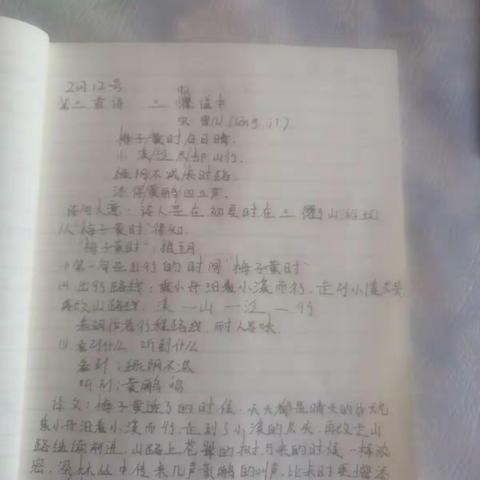 2月12号
第二首诗 三衢道中
宋 曾几(zēng jī)
梅子黄时日日晴,
小溪泛尽却山行。
绿阴不减来时路,
添得黄鹂四五声。
诗句大意:诗人是在初夏时在三衢山
从"梅子黄时"得知。
"梅子黄时",指五月
第一句是出行的时间"梅子黄时"
出行路线:乘小舟沿着小溪而行,走到小溪尽头
再改山路线,溪—山—泛—行
看到什么 听到什么
看到:绿阴不减
听到:黄鹂鸣
译文:梅子黄透了的时候,天天都是晴天的好天气
乘小舟沿着小溪而行,走到了小溪的尽头,再改走山
路继续前进,山路上苍翠的树,与来的时候一样浓
密,深林丛中传来几声黄鹂的叫声,比来时更增添